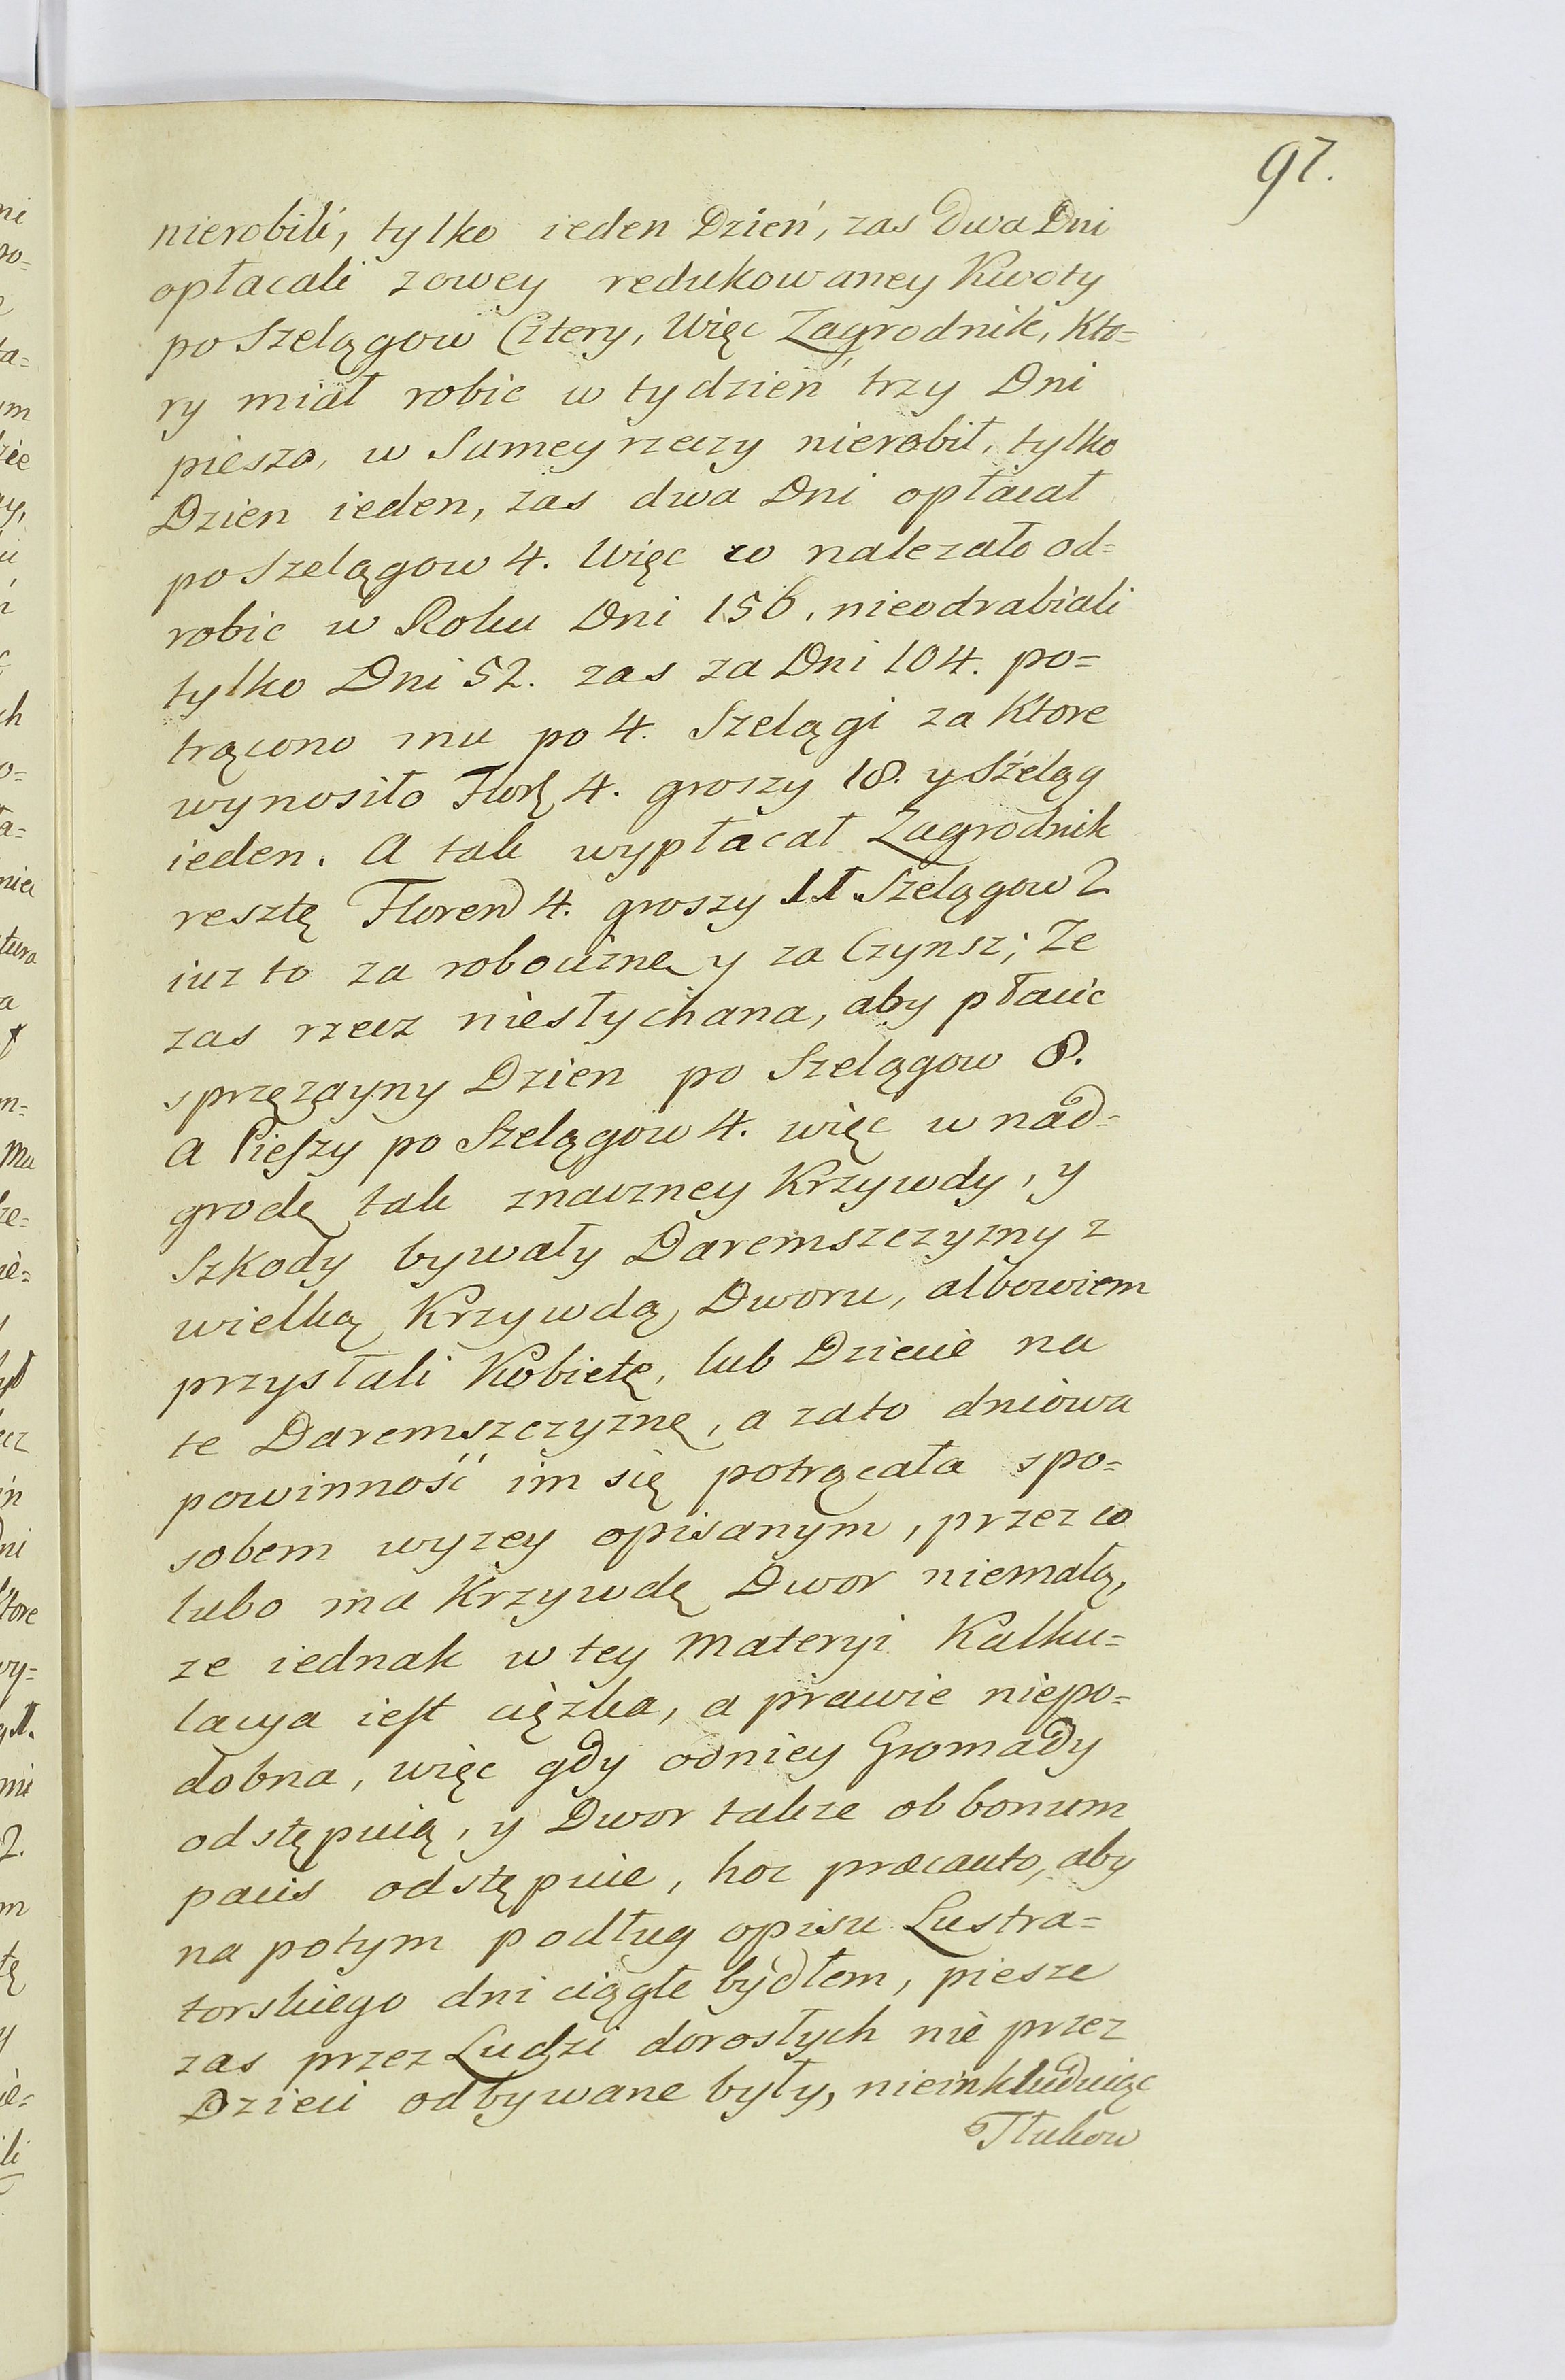 97.
nierobili, tylko ieden Dzień, zas Dwa Dni
opłacali zowey redukowaney Kwoty
po Szelągow Cztery, Więc Zagrodnik, Kto=
ry miał robic w tydzień trzy Dni
pieszo, w Samey rzeczy nierobił, tylko
Dzien ieden, zas dwa Dni opłacał
po Szelągow 4. Więc co nalezało od=
robic w Roku Dni 156, nieodrabiali
tylko Dni 52. zas za Dni 104. po=
trącono mu po 4. Szelągi za Ktore
wynosiło Flor 4. groszy 18. y Szeląg
ieden. A tak wypłacał Zagrodnik
resztę Floren 4. groszy 11 Szelągow 2
iuz to za robociznę y za Czynsz; Ze
zas rzecz niesłychana, aby płacic
sprzęzayny Dzien po Szelągow 8.
A Pieszy po Szelągow 4. więc w nad=
grodę tak znaczney Krzywdy, y
Szkody bywały Daremszczyzny z
wielką Krzywdą Dworu, albowiem
przysłali Kobietę, lub Dziecie na
te Daremszczyznę, a zato dniowa
powinność im się potrącała spo=
sobem wyzey opisanym, przez co
lubo ma Krzywdę Dwor niemałą,
ze iednak w tey Materyi Kalku=
lacya iest cięzka, a prawie niepo=
dobna, więc gdy odniey Gromady
odstępuią, y Dwor takze ob bonum
pacis odstępuie, hoc præcauto, aby
na potym podług opisu Lustra=
torskiego dni ciągłe bydłem, piesze
zas przez Ludzi dorosłych nie przez
Dzieci odbywane były, nieinkluduiąc
Tłukow